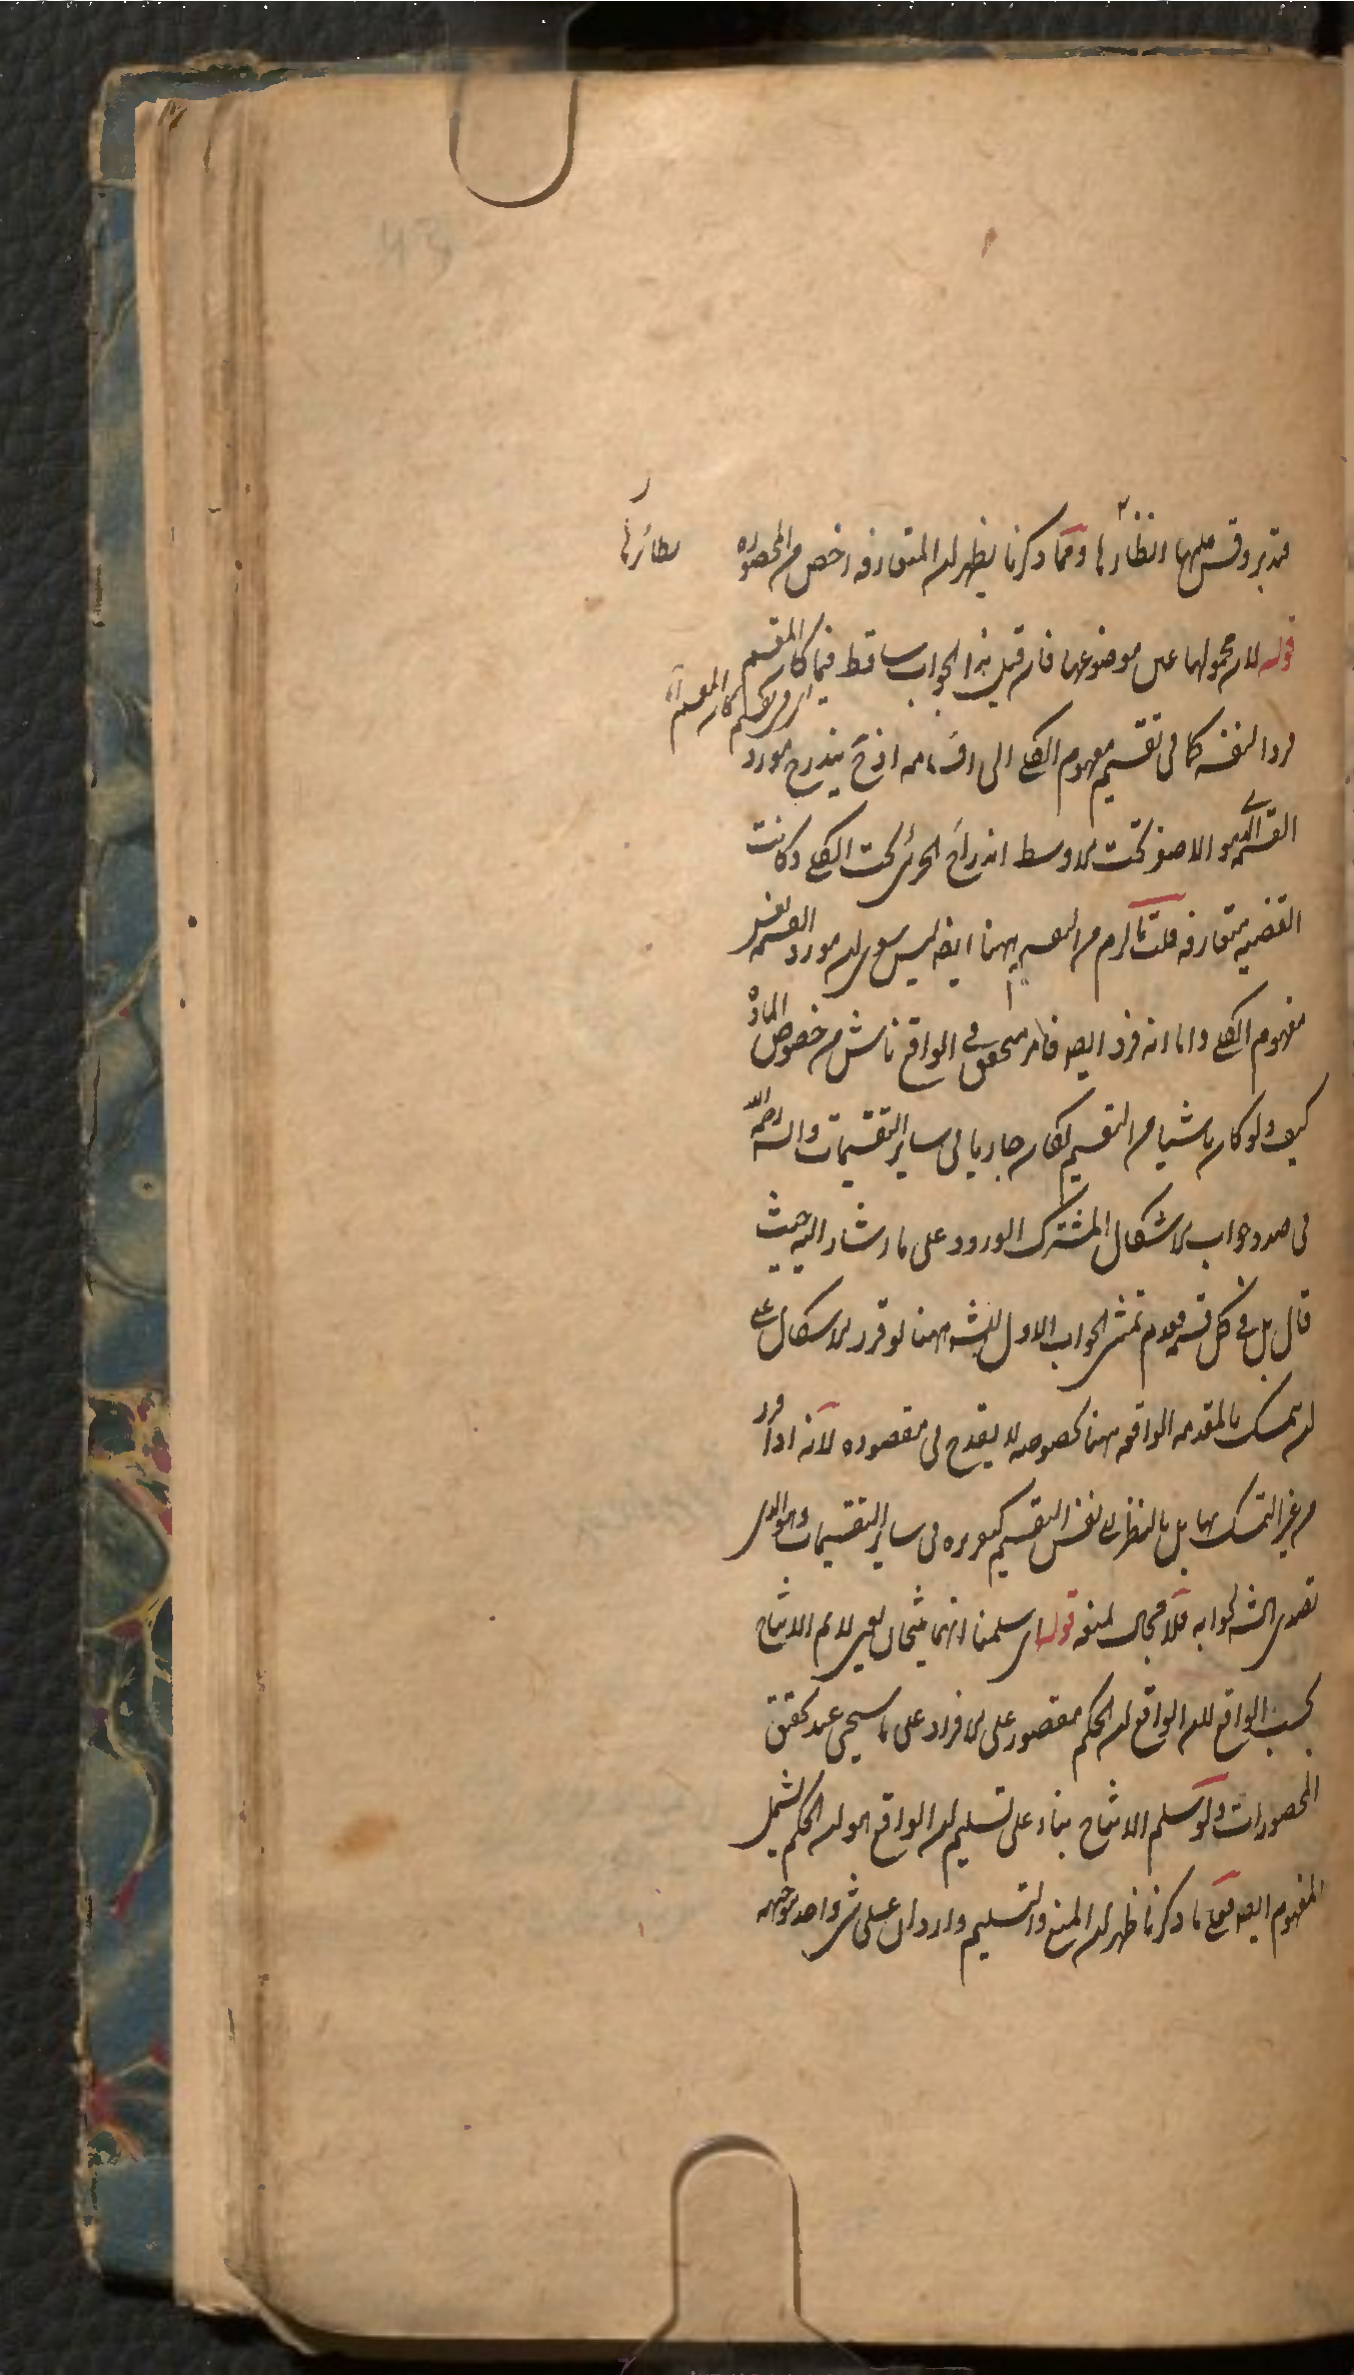 فتدبر وقس عليها انظارها ومما ذكرنا يظهر ان المتعارفه اخص من المحصوره
نظائرها
قوله لان محمولها عين موضوعها فان قيل هذا الجواب ساقط فيما كان المقسم
فردا لنفسه كما في تقسيم مفهوم الكلي الى اقسامه اذ ح يندرج مورد
القسمه الذي هو الاصغر تحت الاوسط اندراج الجزئي تحت الكلي وكانت
القضيه متعارفه قلت ما لزم من التقسيم ههنا ايضا ليس سوى ان مورد القسمه نفس
مفهوم الكلي واما انه فرد ايضا فامر متحقق في الواقع ناش من خصوص الماده
كيف ولو كان ناشيا من التقسيم لكان جاريا في ساير التقسيمات والشه رحمه الله
في صدد جواب الاشكال المشترك الورود على ما اشار اليه حيث
قال بل في كل قسمه فعدم تمشي الجواب الاول للشه ههنا لو قرر الاشكال على
ان تمسك بالمقدمه الواقعه ههنا بخصوصه لا يقدح في مقصوده لانه اذا قرر
من غير التمسك بها بل بالنظر الى نفس التقسيم كموره في ساير التقسيمات وهو الذي
تصدى الشه لجوابه فلا مجال لمنعه قوله اي سلمنا انهما ينتجان يعني لا نم الانتاج
بحسب الواقع لان الواقع ان الحكم مقصور على الافراد على ما سيجي عند تحقيق
المحصورات ولو سلم الانتاج بناء على تسليم ان الواقع هو ان الحكم يشمل
المفهوم ايضا فعلى ما ذكرنا ظهر ان المنع والتسليم واردان على شي واحد